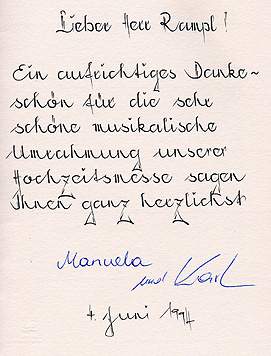 Lieber Herr Rampl!
Ein aufrichtiges Danke~
schön für die sehr
schöne musikalische
Umrahmung unserer
Hochzeitsmesse sagen
Ihnen ganz herzlichst
Manuela
und Karl
4. Juni 1994